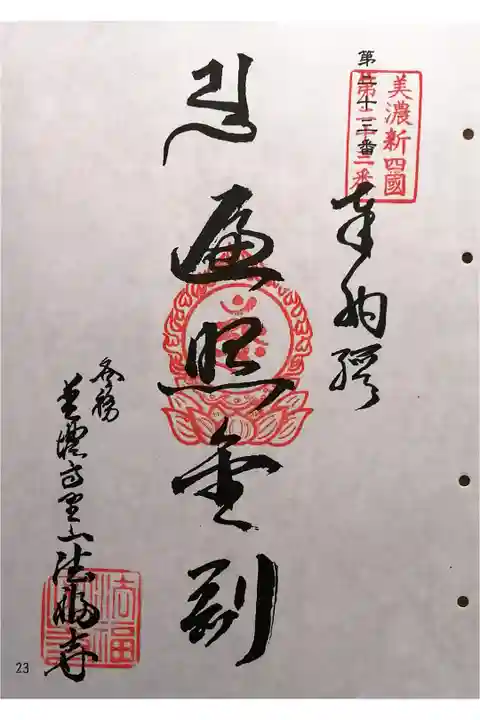 美濃新四國
第二十三番
第二十三番
奉納經
遍照金剛
各務
山法福寺
法福
23